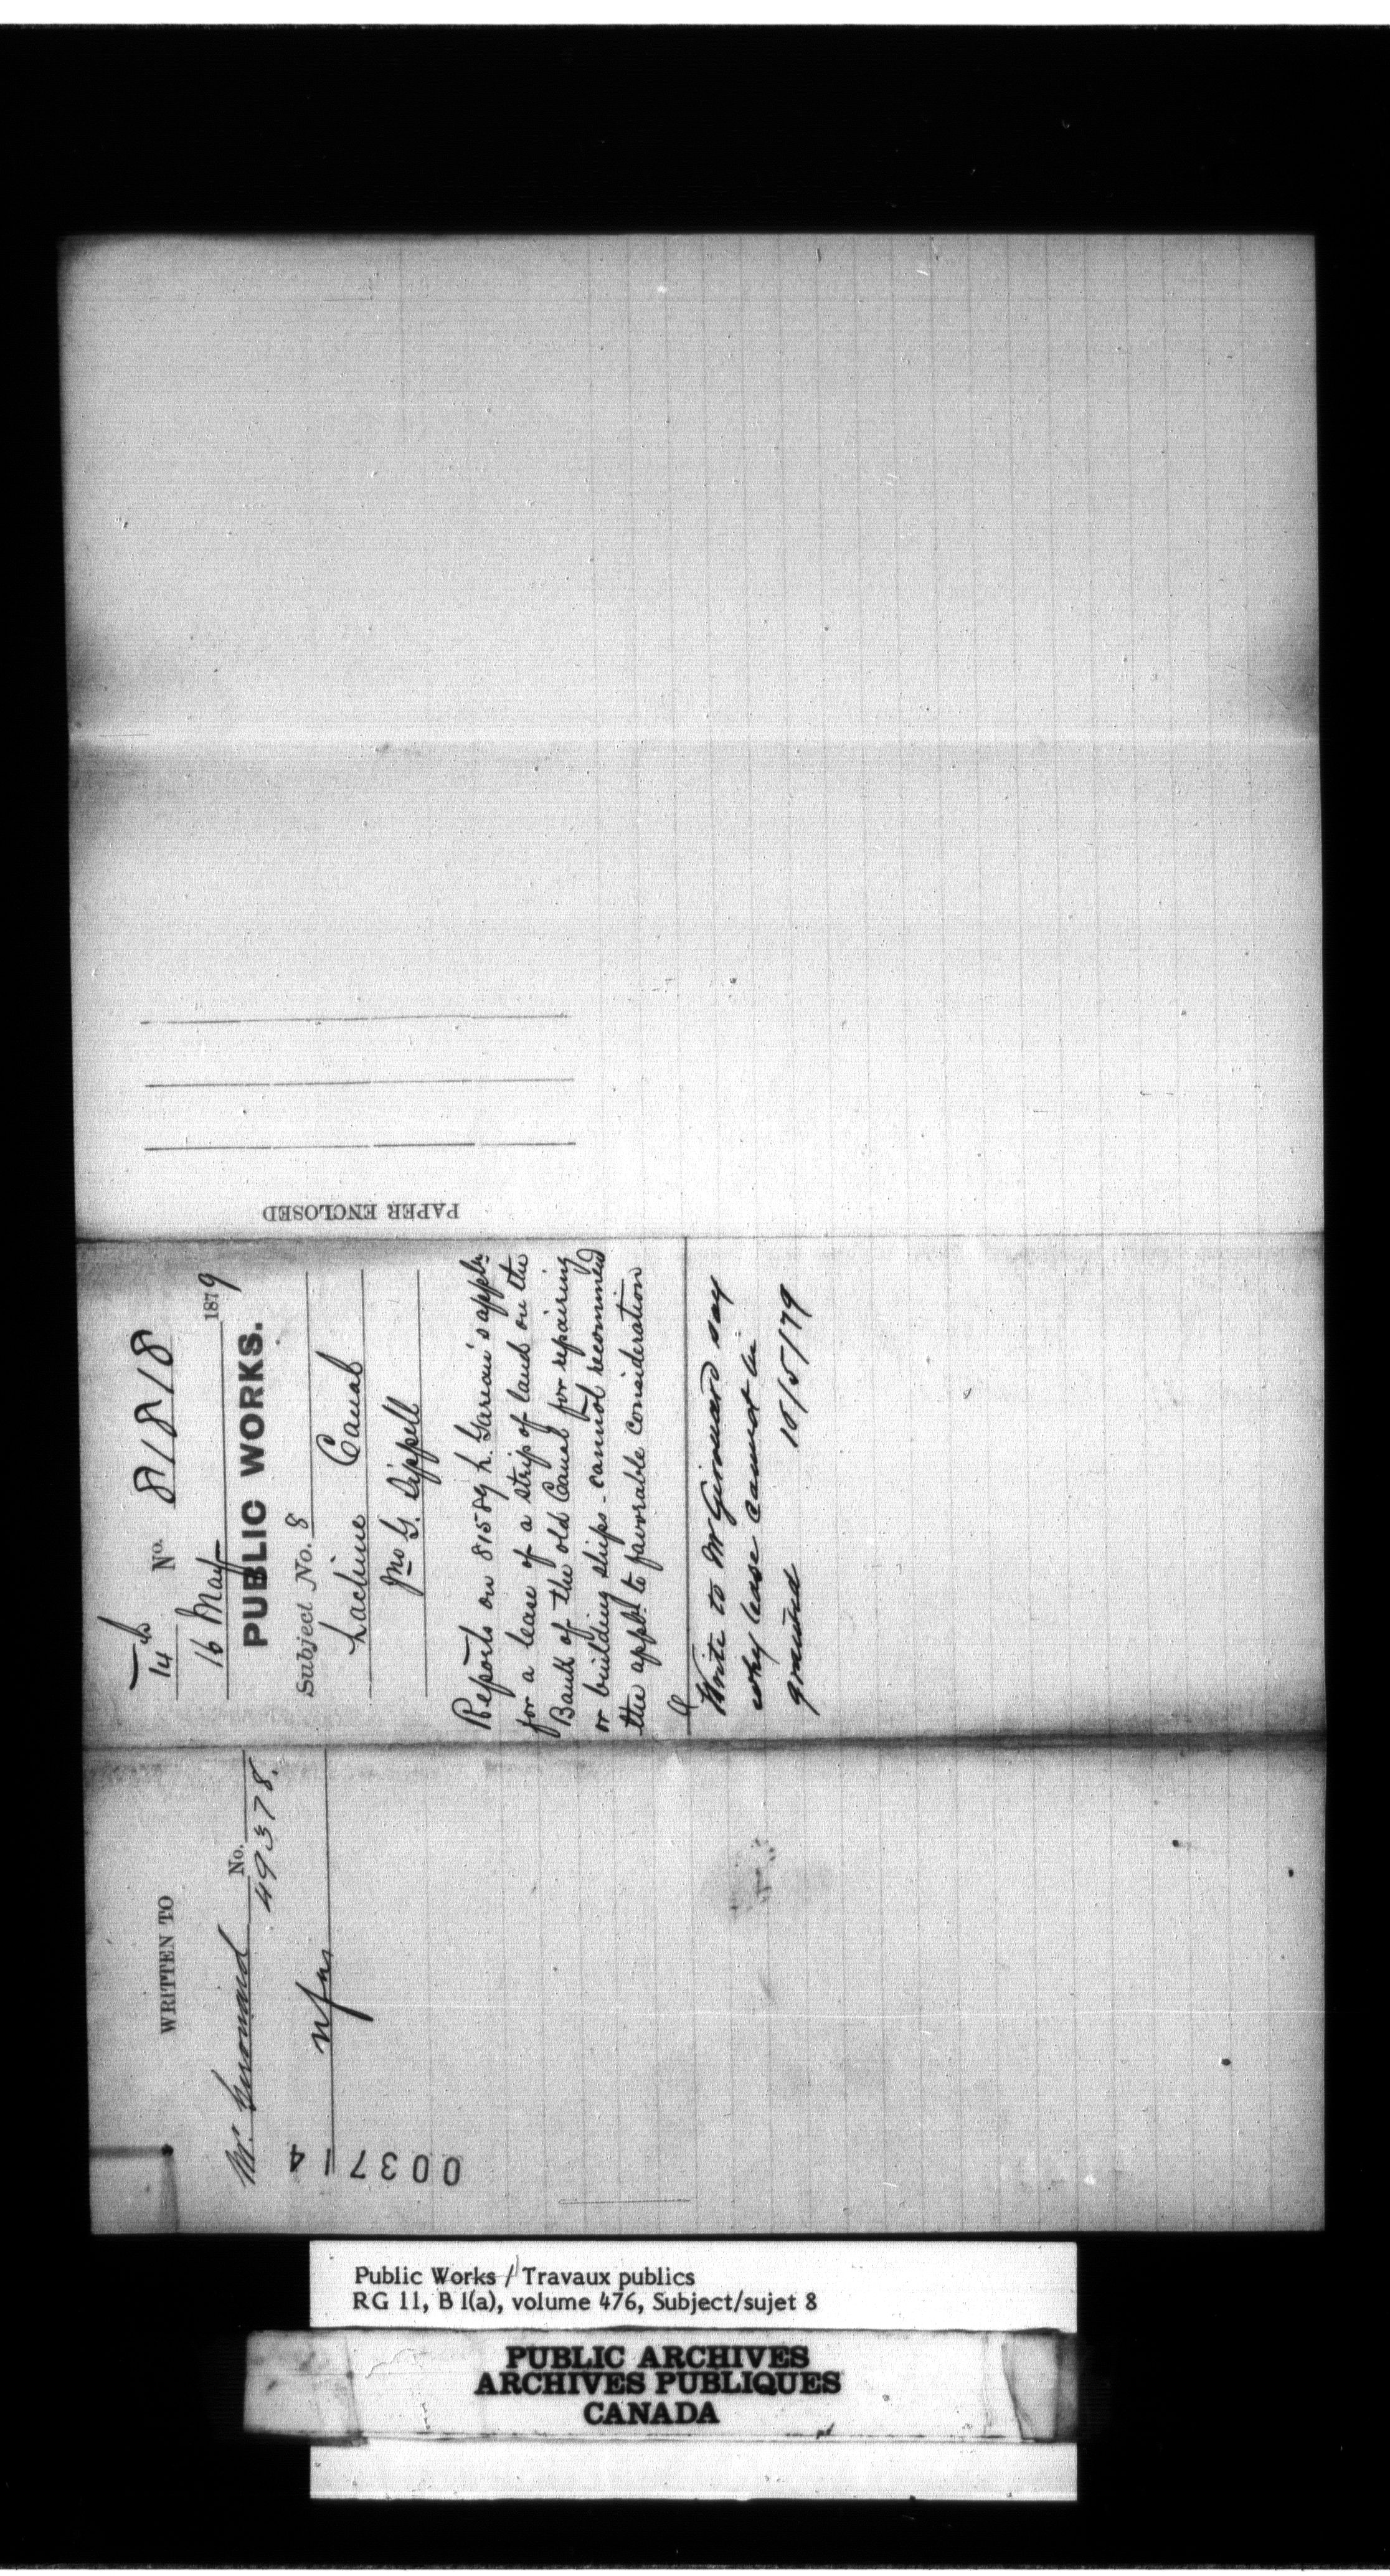 14th No. 81818
16 May 1879
PUBLIC WORKS.
Subject No. 8
Lachine Canal
Jno G. Sippell
Reports on 81589 L. Gareau's appln
for a lease of a strip of land on the
Bank of the old Canal for repairing
or building ships - cannot recommend
the appln to favorable consideration
Write to Mr Girouard say
why lease cannot be
granted 16/5/79
PAPER ENCLOSED
WRITTEN TO
Mr. Girouard No.
49378.
003714
Public Works / Travaux publics
RG 11, B 1(a), volume 476, Subject/sujet 8
PUBLIC ARCHIVES
ARCHIVES PUBLIQUES
CANADA